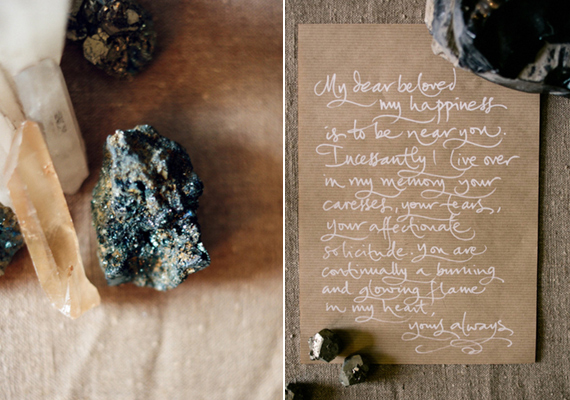 My dear beloved
my happiness
is to be near you.
Incessantly I live over
in my memory your
caresses, your tears,
your affectionate
solicitude. You are
continually a burning
and glowing flame
in my heart,
yours always